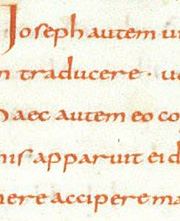 Joseph autem vi
n traducere · vo
haec autem eo co
nis apparuit ei d
mere accipere ma